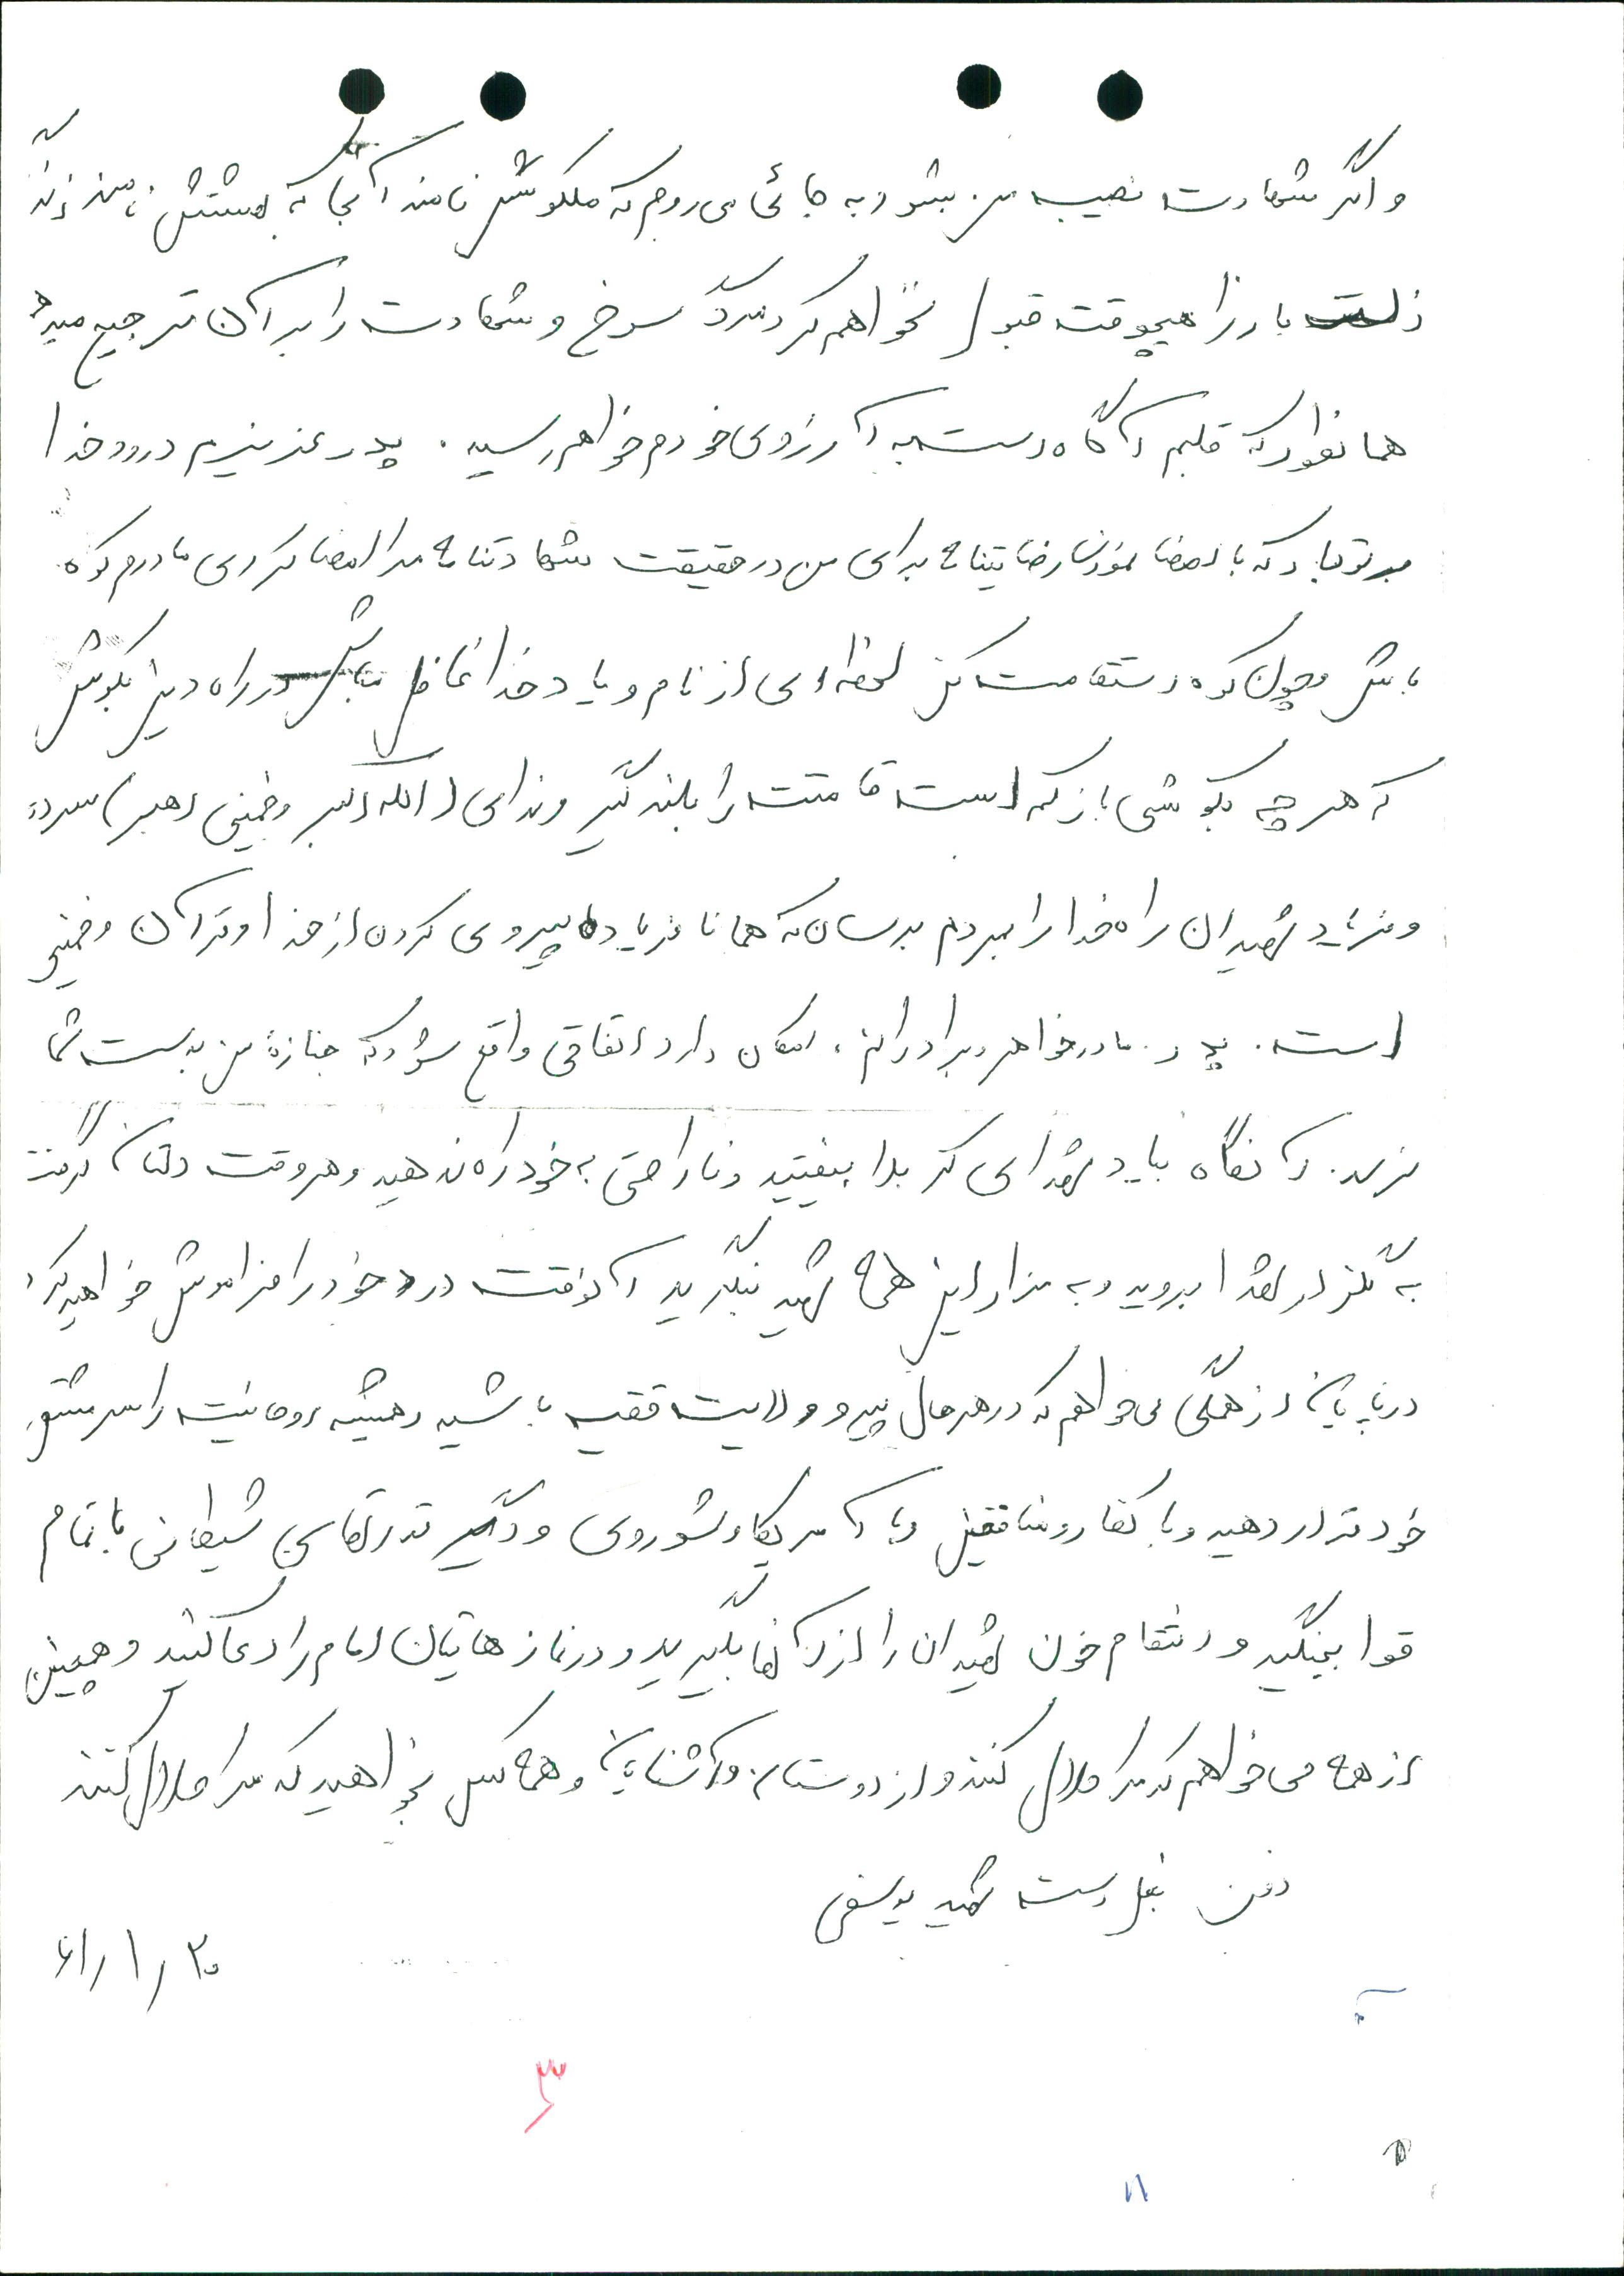 و اگر شهادت نصیب من بشود به جائی می‌روم که ملکوتش نامند آنجا که بهشتش نامند زندگی
ذلت بار را هیچوقت قبول نخواهم کرد مرگ سرخ و شهادت را بر آن ترجیح میدهم
همانطور که قلبم آگاه است به آرزوی خودم خواهم رسید. پدر عزیزم درود خدا
بر تو باد که با امضا نمودن رضایتنامه برای من در حقیقت شهادتنامه مرا امضا کردی مادرم کوه
باش و چون کوه استقامت کن لحظه‌ای از نام و یاد خدا غافل نباش در راه دین بکوش
که هر چه بکوشی باز کم است قامتت را بلند گیر و ندای (الله اکبر و خمینی رهبر) سرده
و فریاد شهیدان راه خدا را بمردم برسان که همانا فریاد پیروی کردن از خدا و قرآن و خمینی
است. پدر. مادر خواهر و برادرانم، امکان دارد اتفاقی واقع شود که جنازهٔ من بدست شما
نرسد. آنگاه بیاد شهدای کربلا بیفتید و ناراحتی به خود راه ندهید و هر وقت دلتان گرفت
به گلزار شهدا بروید و به مزار این همه شهید بنگرید آنوقت درد خود را فراموش خواهید کرد
در پایان از همگی می‌خواهم که در هر حال پیرو ولایت فقیه باشید و همیشه روحانیت را سرمشق
خود قرار دهید و با کفار و منافقین و با آمریکا و شوروی و دیگر قدرتهای شیطانی با تمام
قوا بجنگید و انتقام خون شهیدان را از آنها بگیرید و در نمازهایتان امام را دعا کنید و همچنین
از همه می‌خواهم که مرا حلال کنند و از دوستان و آشنایان و همه کس بخواهید که مرا حلال کنند
دفن بغل دست شهید یوسفی
۶۱/۱/۲۰
۳